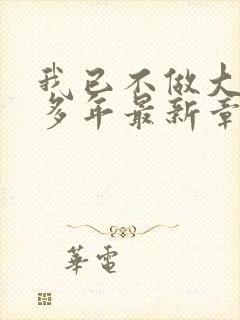 我已不做大
多年最新章
華電